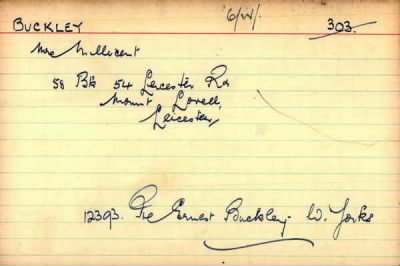 BUCKLEY 303.
Mrs Millicent
58 Bk 54 Leicester Rd
Mount Sorrel,
Leicester,
12393. Pte Ernest Buckley. W. Yorks